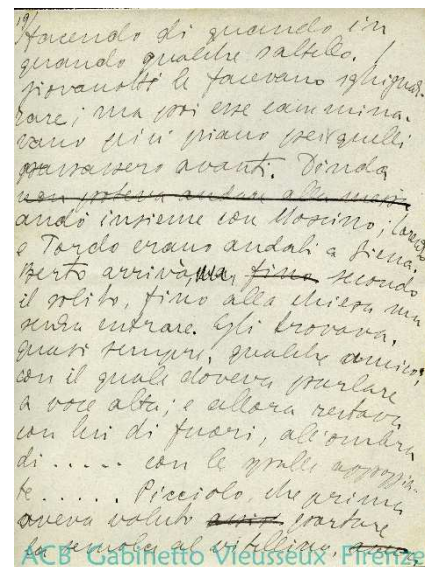 19)
facendo di quando in
quando qualche saltello. I
giovanotti le facevano sghignaz-
zare; ma poi esse cammina-
vano più piano perché quelli
passassero avanti. Dinda
non poteva andare alla messa
andò insieme con Moscino;
e Tordo erano andati a Siena.
Berto arrivò, ma, fino secondo
il solito, fino alla chiesa ma
senza entrare. Egli trovava,
quasi sempre, qualche amico;
con il quale doveva parlare
a voce alta; e allora restava
con lui di fuori, all'ombra
di ..... con le spalle appoggia-
te ...... Picciolo, che prima
aveva voluto portare
la semola al vitellino,
ACB Gabinetto Vieusseux Firenze